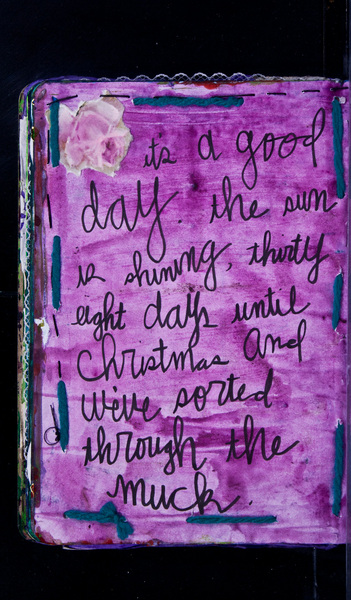 it's a good
day. the sun
is shining, thirty
eight days until
christmas and
we've sorted
through the
muck.